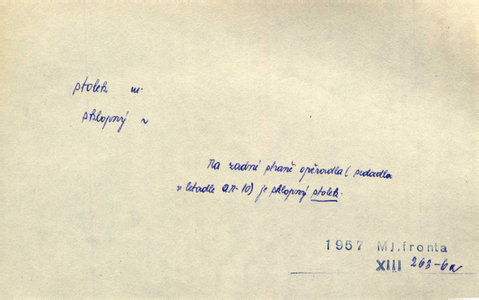 stolek m.
sklopný ~
Na zadní straně opěradla (sedadla
v letadle AN-10) je sklopný stolek.
1957 Ml.fronta
XIII 263-6a